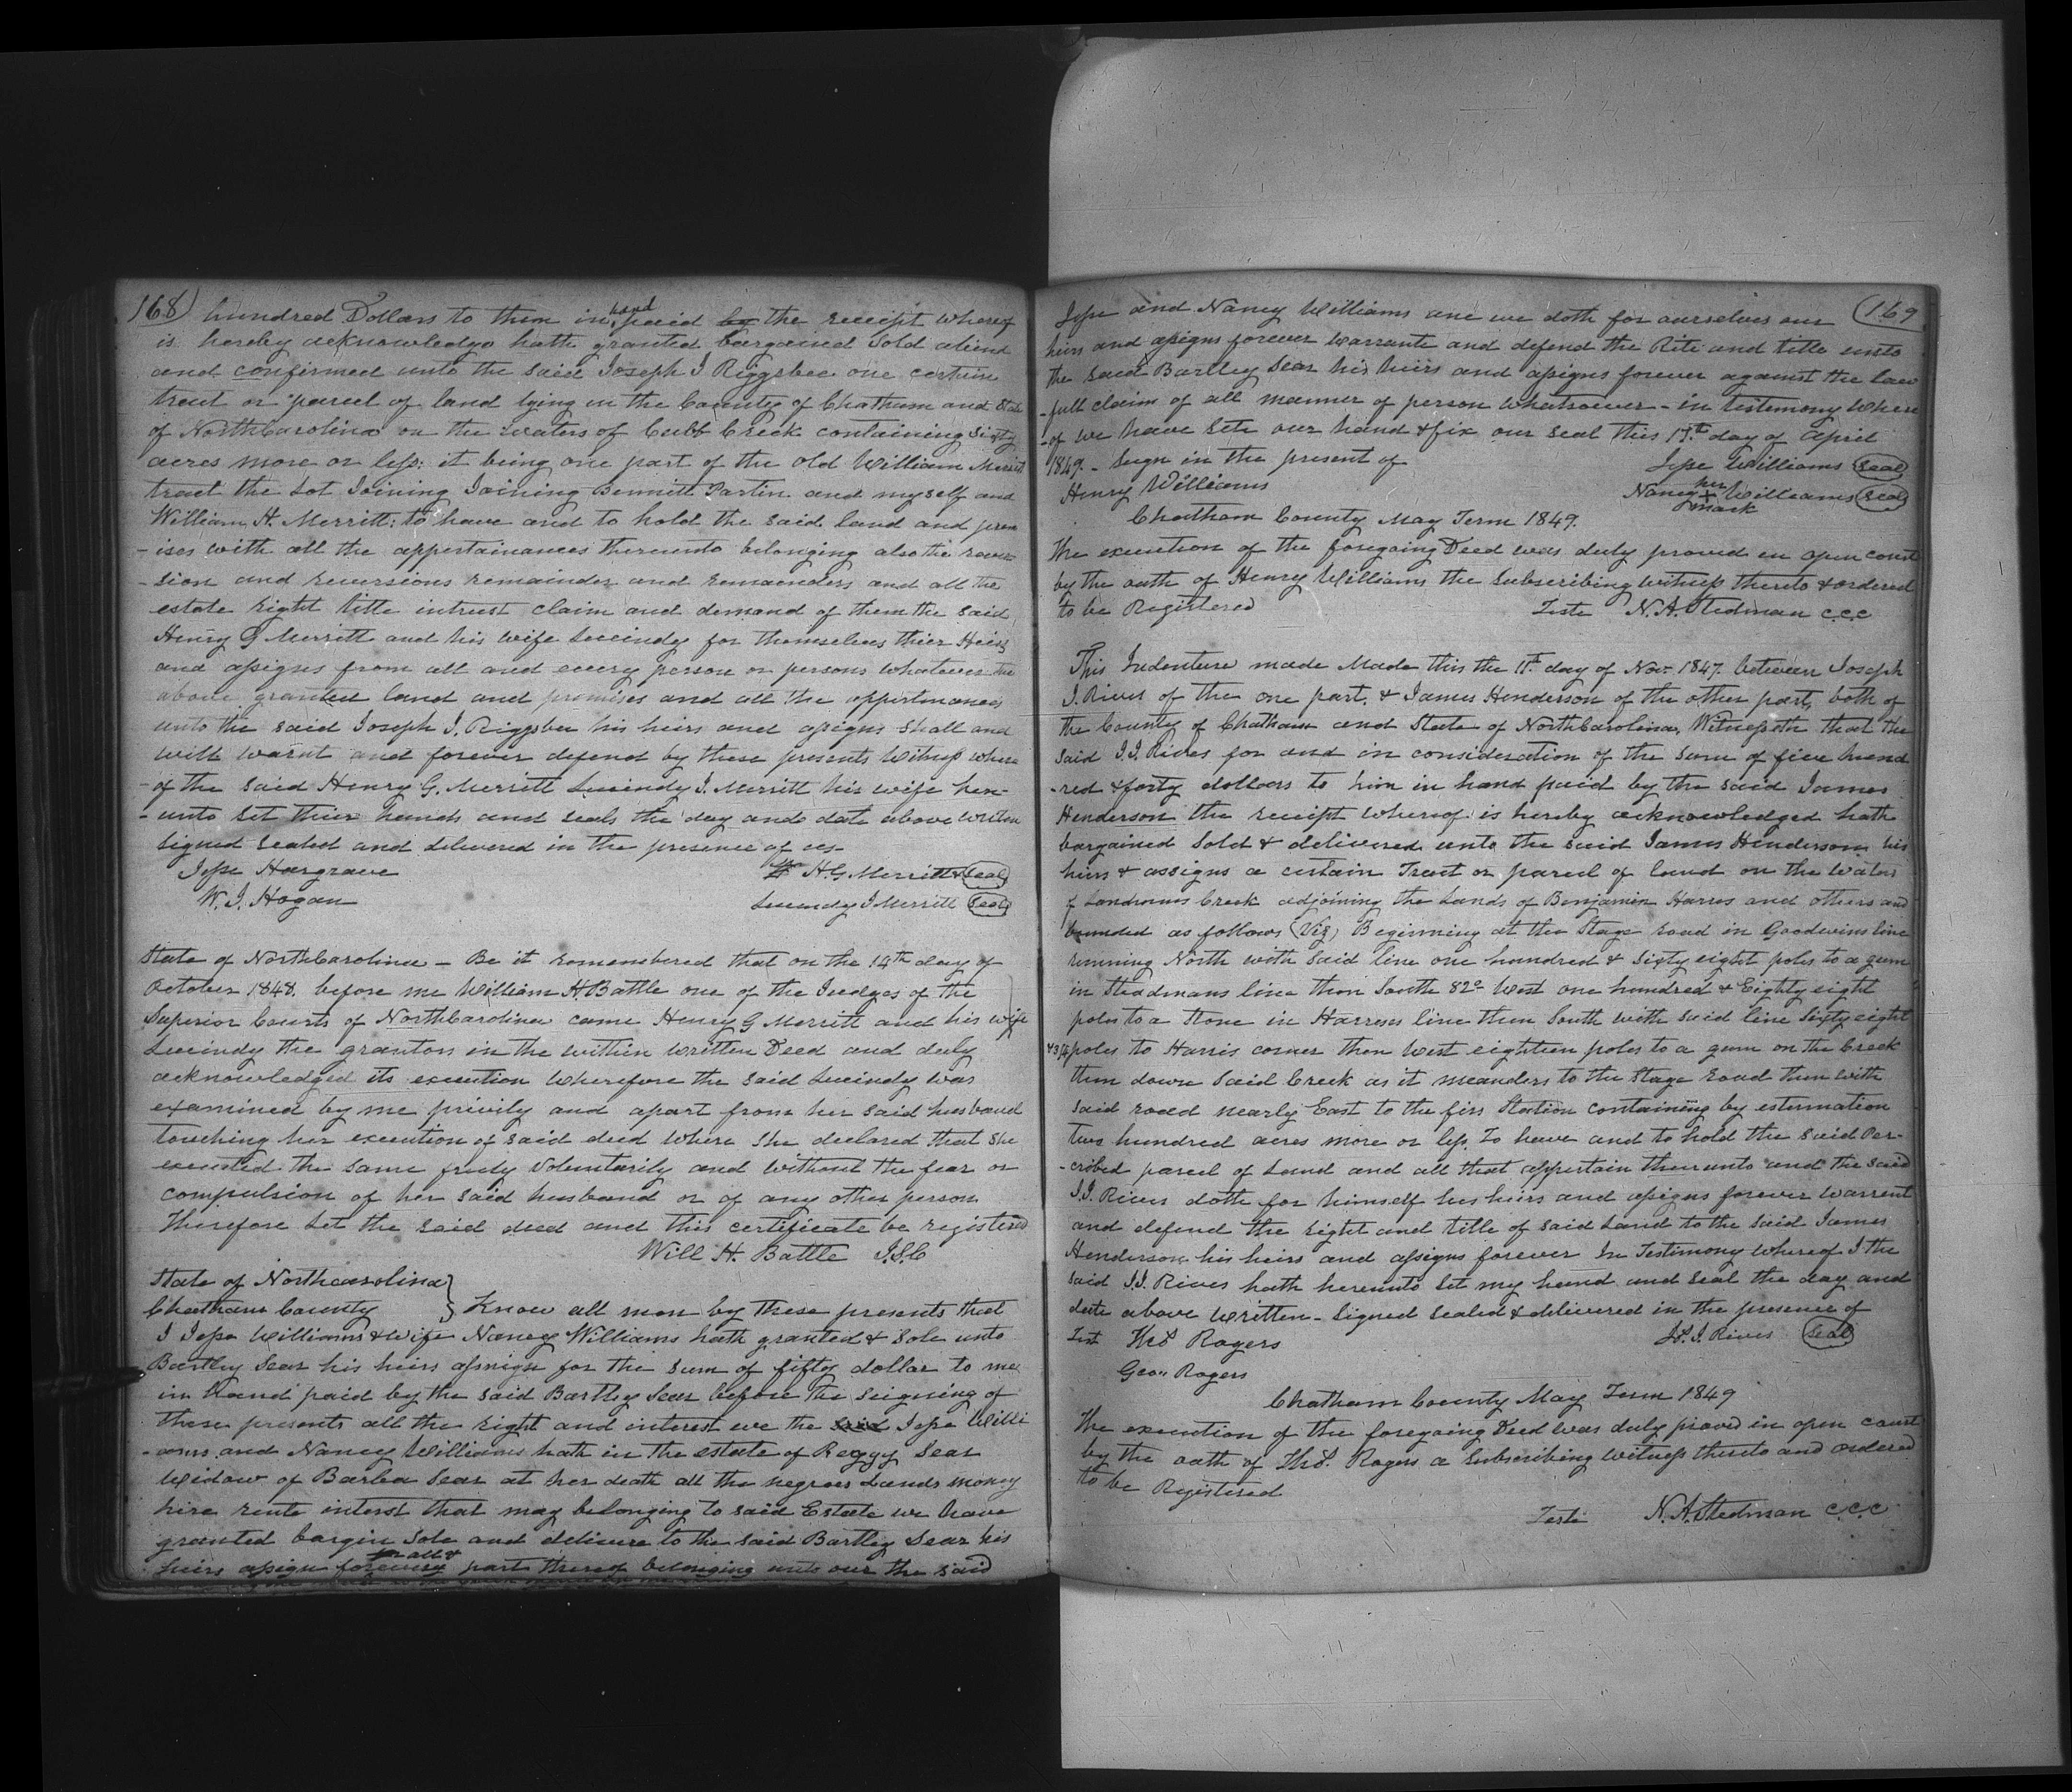 168) hundred Dollars to them in hand paid by the receipt whereof
is hereby acknowledge hath granted bargained Sold aliend
and confirmed unto the said Joseph J Riggsbee one certain
tract or parcel of land lying in the County of Chatham and State
of NorthCarolina on the waters of Cubb Creek containing Sixty
acres more or less: it being one part of the old William Merritt
tract the Lot Joining Joining Bennett Partin and myself and
William H. Merritt: to have and to hold the said land and prem
-ises with all the appertainances thereunto belonging also the rever
-sion and recursions remainder and remaenders and all the
estate right title intrust claim and demand of them the said
Henry G Merritt and his wife Lucindy for themselves thier Heirs
and assigns from all and every person or persons whatever the
above granted land and promises and all the appertinances
unto the said Joseph J. Riggsbee his heirs and assigns Shall and
will warnt and forever defend by these presents Witness where
-of the said Henry G. Merritt Lucindy J. Merritt his wife here-
-unto Set thier hands and seals the day and date above written
Signed Sealed and delivered in the presence of us-
Jesse Hargrave H.G Merritt Seal
W. J. Hogan Lucindy J Merritt Seal
State of NorthCarolina - Be it remembered that on the 14th day of
October 1848. before me William H Battle one of the Judges of the
Superior Courts of NorthCarolina came Henry G Merritt and his wife
Lucindy the grantors in the within written Deed and duly
acknowledged its execution Wherefore the said Lucindy was
examined by me privily and apart from her said husband
touching her execution of said deed where She declared that She
executed the same freely Voluntarily and without the fear or
compulsion of her said husband or of any other person
Therefore Let the said deed and this certificate be registered
Will H. Battle J.S.C
State of Northcarolina }
Chatham County } Know all men by these presents that
I Jesse Williams & wife Nancy Williams hath granted & Sole unto
Bartley Sear his heirs assign for the Sum of fifty dollar to me
in hand paid by the said Bartley Sear before the Seigning of
these presents all the right and interest we the said Jesse Willi
-ams and Nancy Williams hath in the estate of Reggy Sear
Widow of Barba Sear at her death all the negroes Lands money
hire rents interest that may belonging to said Estate we have
granted bargin Sole and delivere to the said Bartley Sear his
heirs assign for all & every part thereof belonging unto our the said
Jesse and Nancy Williams and we doth for ourselves our 169
heirs and assigns forever Warrante and defend the Rite and title unto
the said Bartley Sear his heirs and assigns forever against the law
-full claim of all manner of person whatsoever - in testimony where
-of we have Sete our hand & fix our Seal this 17th day of April
1849. - Seign in the present of Jesse Williams Seal
Henry Williams Nancy her + mark Williams Seal
Chatham County May Term 1849.
The execution of the foregoing Deed was duly proved in open court
by the oath of Henry Williams the Subscribing witness thereto & ordered
to be Registered Teste N. A. Stedman c.c.c
This Indenture made Made this the 11th day of Nov. 1847. between Joseph
J. Rives of the one part. & James Henderson of the other part, both of
the County of Chatham and State of NorthCarolina, Witnesseth that the
Said J.J. Rives for and in consideration of the Sum of five hund
-red & forty dollars to him in hand paid by the said James
Henderson the receipt whereof is hereby acknowledged hath
bargained Sold & delivered unto the said James Henderson his
heirs & assigns a certain Tract or parcel of land on the waters
of Landrums Creek adjoining the Lands of Benjamin Harris and others and
bounded as follows (Viz) Beginning at the Stage road in Goodwins line
running North with said line one hundred & Sixty eight poles to a gum
in Steadmans line then South 82° West one hundred & Eighty eight
poles to a Stone in Harreses line then South with said line Sixty eight
& 3/4 poles to Harris corner then West eighteen poles to a gum on the Creek
then down Said Creek as it meanders to the Stage road then with
Said road nearly East to the firs Station containing by estermation
Two hundred acres more or less, To have and to hold the said Per-
-cribed parcel of Land and all that appertain thereunto and the said
J.J. Rives doth for himself his heirs and assigns forever Warrent
and defend the right and title of said Land to the said James
Henderson his heirs and assigns forever In Testimony whereof I the
Said J.J. Rives hath hereunto Set my hand and Seal the day and
date above written - Signed Sealed & delivered in the presence of
Test Thos. Rogers Jos. J. Rives Seal
Geo. Rogers
Chatham County May Term 1849
The execution of the foregoing Deed was duly proved in open court
by the oath of Thos. Rogers a Subscribing Witness thereto and ordered
to be Registered
Teste N. A. Stedman c.c.c